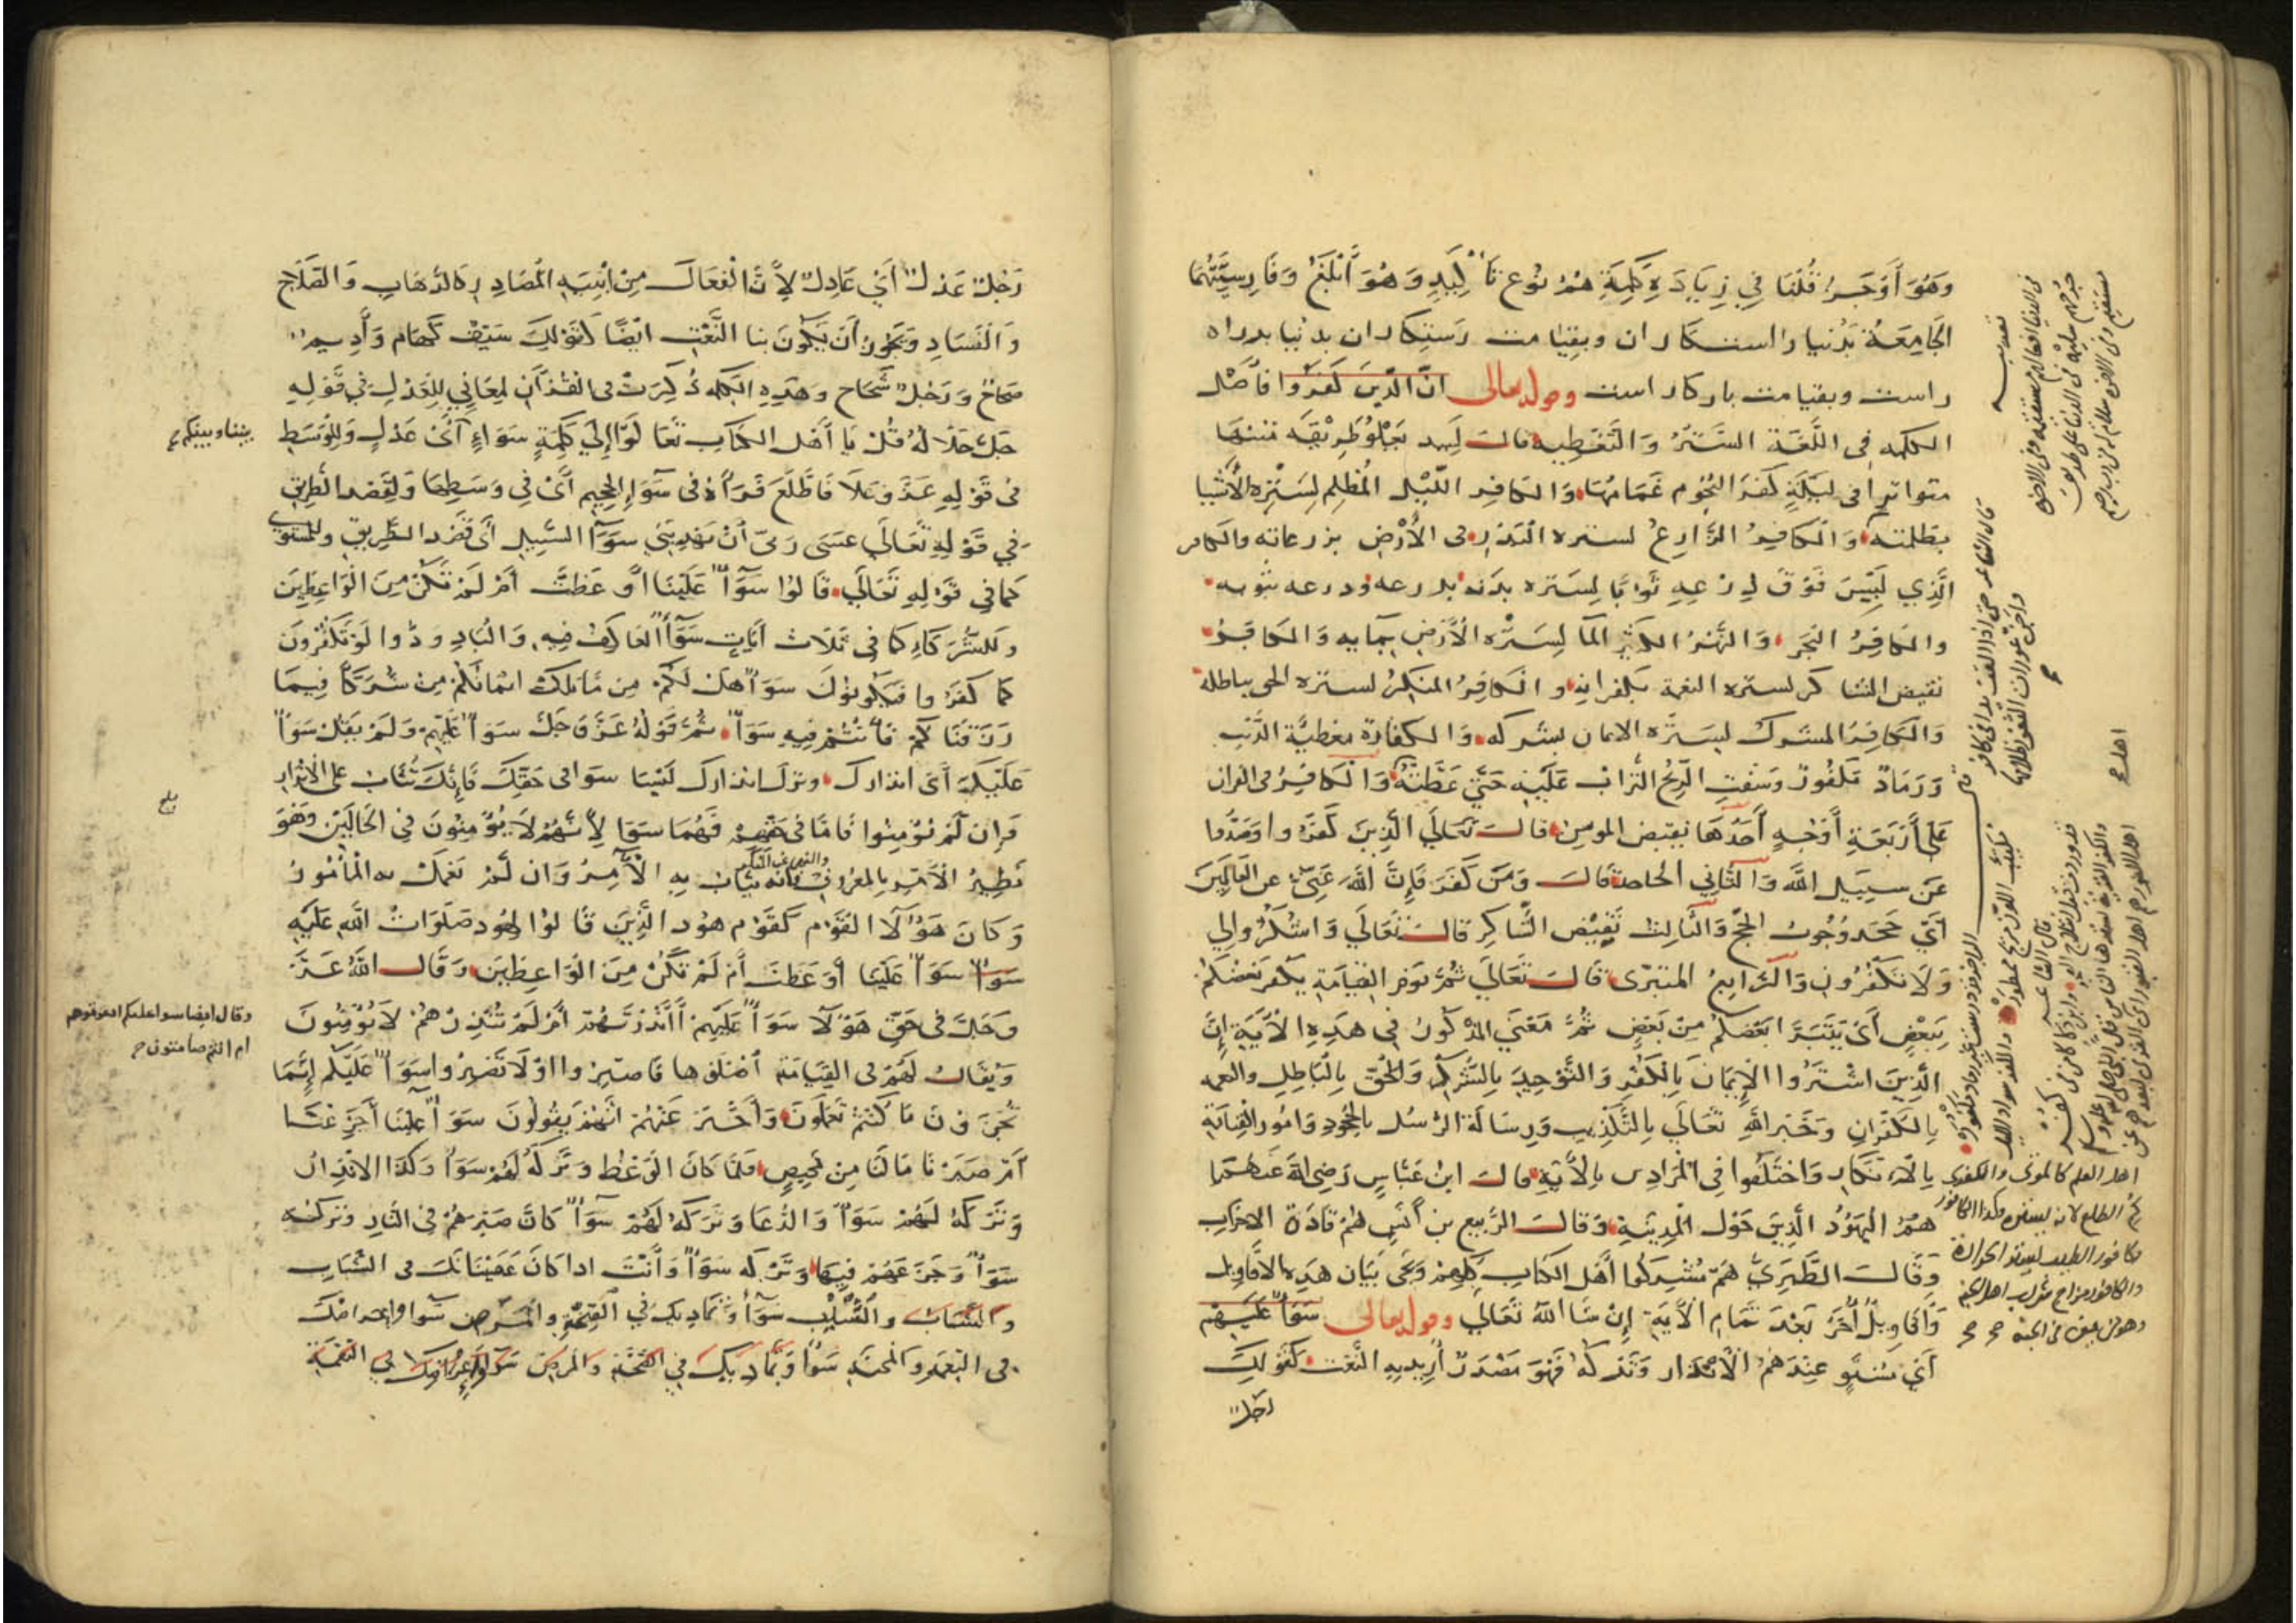 وَهُوَ أَوْجَزُ قُلْنَا فِي زِيَادَةِ كَلِمَةِ هُمْ نَوْع تَأكِيدٍ وَهُوَ أَبْلَغُ وَفَارِسِيَّتُهَا
الجَامِعَةُ بَدُنيا راست كاران وبقيامت رستكاران بدنيا بدراه
راست وبقيامت باركار است وقوله تعالى انَّ الَّذِينَ كَفَرُوا فأصْل
الكلمه فى اللُّغَةِ السَّتْرُ وَالتَّغْطِيه قالَ لَبِيد يَعْلُو طَرِيقَه متنها
متواترا فى لَيْلَةٍ كَفَرَ النُّجُوم غَمَامُهَا وَالكَافِر اللَّيْل المُظْلِم لِسَتْرِهِ الأَشْيا
بظلمته وَالكَافِرُ الزَّارِعُ لستره البَذر فى الأَرْضِ بزرعاته والكافر
الَّذِي لَبِسَ فَوْقَ دِرْعِهِ ثَوْبًا لِسَتره بدَنه بدرعه ودرعه بثوبه
والكافِرُ البَحر وَالنَّهْرُ الكَثِير المَا لِسَتْرِه الأَرْضَ بِمَايِه وَالكَافِرُ
نقيض الشاكر لستره النعمة بكفرانه والكافِرُ المنكِرُ لستره الحق بباطله
وَالكَافِرُ المشرك لِسَتْرِه الايمان بشركه وَالكفارة مغطيّة الذَّنْب
وَرَمَادٌ مَكْفُورٌ وَسَفَتِ الرِّيحُ التُّرَابَ عَلَيْهِ حَتَّى غَطَّتْهُ وَالكَافِرُ فى القران
عَلى أَرْبَعَةِ أَوْجُهٍ أَحَدُهَا نقيض المومِن قالَ تَعَالَى الَّذِينَ كَفَرُوا وَصَدُّوا
عَنْ سبِيلِ اللَّه وَالثَّانِي الجاحد قَالَ وَمَن كَفَرَ فَإِنَّ اللَّهَ غَنِيٌّ عن العَالَمِينَ
أَيْ جَحَدَ وُجُوبَ الحَجِّ وَالثَّالِث نَقِيْض الشَّاكِر قَالَ تَعَالَى وَاشْكُرُوا لِي
وَلَا تَكْفُرُونِ وَالرَّابِعُ المتبرّى قَالَ تَعَالَى ثُمَّ يَوْمَ القِيَامَةِ يَكْفُرُ بَعْضُكُمْ
بِبَعْضٍ أَىْ يَتَبَرَّأ بَعْضُكُمْ مِنْ بَعْضٍ ثُمَّ مَعْنَى المَذْكُورُ فِي هَذِهِ الأَيَةِ إِنَّ
الَّذِينَ اشْتَرَوُا الإِيمَانَ بِالكُفْرِ وَالتَّوْحِيدَ بِالشِّرْكِ وَالحَقَّ بِالْبَاطِلِ والنعمه
بِالكُفْرَانِ وَخَبَر اللَّهِ تَعَالَى بِالتَّكْذِيبِ وَرِسَالَة الرُّسُل بِالجُحُودِ وَامُور القِيَامَةِ
بِالانكار وَاخْتَلَفُوا فِي المُرَادِين بِالأَيَةِ قالَ ابنُ عَبَّاسٍ رَضِىَ اللَّه عَنهُمَا
هُمُ الْيَهُودُ الَّذِينَ حَوْل المَدِينَةِ وَقَالَ الرَّبِيع بن أَنَسٍ هُمْ قَادَة الاحزاب
وَقَالَ الطَّبَرِيُّ هُمْ مُشْرِكُوا أَهْل الكتَابِ كُلّهِمْ وَنحى بَيَان هَذِه الأقاويل
وَأَقَاوِيلُ أُخَرُ بَعْدَ تَمَامِ الأَيَةِ إِنْ شَا اللَّهُ تَعَالَى وقوله تعالى سَوَآءٌ عَلَيْهِمْ
أَيْ مُسْتَوٍ عِنْدَهُمُ الْاِنْذَار وَتَركهُ فَهُوَ مَصْدَرٌ أُرِيدَ بِهِ النَّعْت كَقَوْلِكَ
رَجُلٌ
اهل العلم كالموتى والكفرى
كم الطلع لانه يستره وكذا الكافور
كافور الطيب ليستر الحرارة
والكافور مزاج شراب اهل الجنة
وهو عين فى الجنة صح
رَجُلٌ عَدْلٌ أَيْ عَادِلٌ لِأَنَّ الفَعَالَ مِنْ ابْنِيَةِ المَصَادِرِ كَالذَّهَابِ وَالصَّلَاحِ
وَالْفَسَادِ وَيَجُوزُ أَن يَكُونَ بنا النَّعْتِ ايْضًا كَقَوْلِكَ سَيْفٌ كَهَام وَأَدِيمٌ
صَحَاحٌ وَرَجُلٌ شَحَاح وهَذِهِ الكلمه ذُكِرَتْ فى القُرْآنِ لِمَعَانِي لِلعَدْلِ في قَوْلِهِ
جَلَّ جَلَالُهُ قُلْ يَا أَهْلَ الكتَابِ تَعَالَوْا إِلَى كَلِمَةٍ سَوَاءٍ أَىْ عَدْلٍ وَلِلْوَسَطِ
فى قَوْلِهِ عَزَّ وَعَلَا فَاطَّلَعَ فَرَآهُ فى سَوَآءِ الجَحِيمِ أَىْ فِي وَسَطِهَا وَلِقَصْدِ الطَّرِيقِ
فِي قَوْلِهِ تَعَالَى عَسَى رَبِّي أَنْ يَهْدِيَنِي سَوَآءَ السَّبِيلِ أَىْ قَصْدَ الطَّرِيقِ وللمستوي
كما فى قَوْلِهِ تَعَالَى قَالُوا سَوَآءٌ عَلَيْنَا أَوَعَظْتَ أَمْ لَمْ تَكُنْ مِنَ الْوَاعِظِينَ
وللشُّرَكَاءِ كما فى ثَلَاث أَيَاتٍ سَوَآءً العَاكِفُ فِيهِ وَالْبَادِ وَدُّوا لَوْ تَكْفُرُونَ
كَمَا كَفَرُوا فَتَكُونُونَ سَوَآءً هَلْ لَكُمْ مِن مَّا مَلَكَتْ ايْمَانُكُمْ مِنْ شُرَكَاءَ فِيمَا
رَزَقْنَاكُمْ فَأَنْتُمْ فِيهِ سَوَآءٌ ثُمَّ قَوْلُهُ عَزَّ وَجَلَّ سَوَآءٌ عَلَيْهِمْ وَلَمْ يَقُلْ سَوَآءٌ
عَلَيْكَ أَىْ انذارك وترك انذارك لَيْسَا سَوَا فى حَقِّكَ فَإِنَّكَ تُثَابُ على الْانْذَارِ
وَإِن لَمْ يُؤْمِنُوا فَأَمَّا فى حَقِّهِمْ فَهُمَا سَوَآ لِأَنَّهُمْ لَا يُؤْمِنُونَ فِى الحَالَيْنِ وَهُوَ
نَظِيرُ الْأَمْرِ بِالمعْرُوفِ والنهى عن المنكر فانه يُثَابُ بِهِ الْآمِرُ وَان لَّمْ يَعْمَلْ به الْمَأمُورُ
وَكَانَ هَؤُلَا القَوْمِ كَقَوْمِ هُود الَّذِينَ قَالُوا لِهُود صَلَوَاتُ اللَّهِ عَلَيْهِ
سَوَآءٌ عَلَيْنَا أَوَعَظْتَ أَمْ لَمْ تَكُنْ مِنَ الْوَاعِظِينَ وَقَالَ اللَّهُ عَزَّ
وَجَلَّ فى حَقِّ هَؤُلَا سَوَآءٌ عَلَيْهِمْ أَأَنْذَرْتَهُمْ أَمْ لَمْ تُنْذِرْهُمْ لَا يُؤْمِنُونَ
وَيُقَالُ لَهُمْ فى القِيَامَة اصْلَوْهَا فَاصبِرُوا أَوْ لَا تَصْبِرُوا سَوَآءٌ عَلَيْكُمْ إِنَّمَا
تُجْزَوْنَ مَا كُنْتُمْ تَعْمَلُونَ وَأَخْبَرَ عَنْهُمْ انَّهُمْ يَقُولُونَ سَوَآءٌ عَلَيْنَا أَجَزِعْنَا
أَمْ صَبَرْنَا مَا لَنَا مِنْ مَحِيصٍ فَلَمَّا كَانَ الوَعْظ وَتَرْكُهُ لَهُمْ سَوَآءٌ وَكَذَا الانْذَارُ
وَتَرْكُهُ لَهُمْ سَوَآءٌ وَالدُّعَا وَتَرْكُهُ لَهُمْ سَوَآءٌ كَانَ صَبْرُهُمْ فى النَّارِ وَتَرْكُهُ
سَوَآءٌ وَجَزَعُهُمْ فِيهَا وَتَرْكه سَوَآءٌ وَأَنْتَ اذا كَانَ عِصْيَانُكَ فى الشَّبَابِ
والشَّيْبِ سَوَآءً وَتَمَادِيكَ في الصِّحَّةِ والْمَرَض سَوَآءً وَاعراضك
فى النِّعْمَةِ والمِحْنَةِ سَوَآءً وَتَمَادِيكَ فِي الصِّحَّةِ وَالْمَرَضِ سَوَآءً وَإِعْرَاضُكَ فِي النِّعْمَةِ
بيننا وبينكم
بلغ
وقال ايضا سواء عليكم ادعوتموهم
ام انتم صامتون